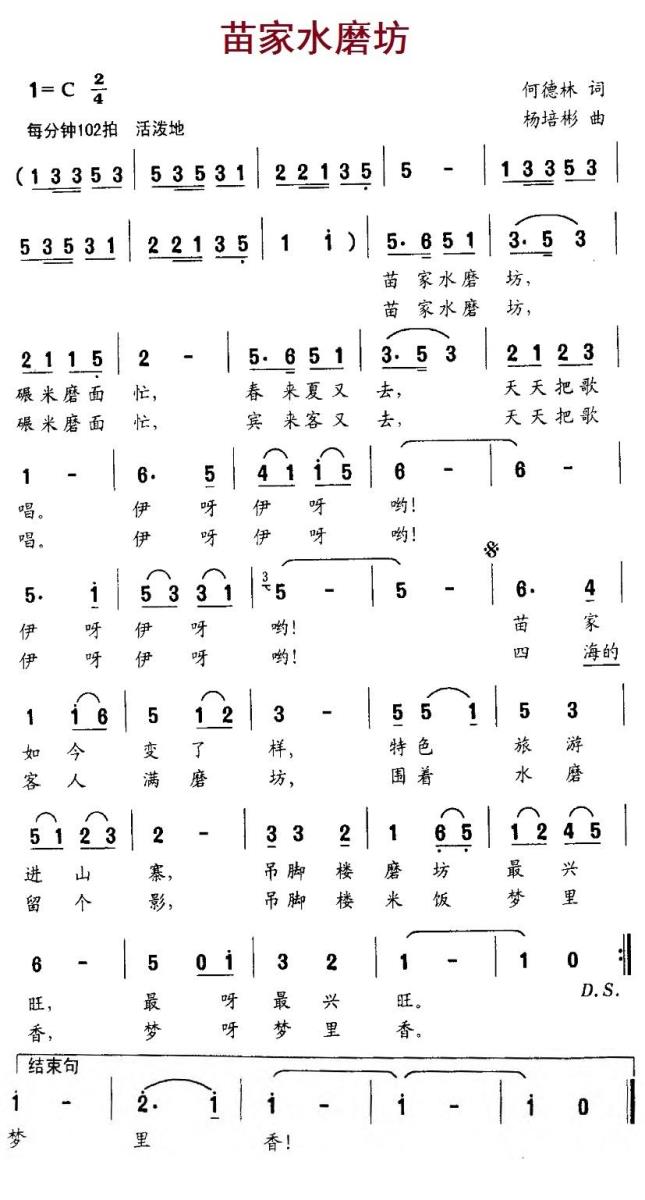 苗家水磨坊
1=C 2/4
何德林 词
每分钟102拍 活泼地
杨培彬 曲
(1 3 3 5 3 | 5 3 5 3 1 | 2 2 1 3 5 | 5 - | 1 3 3 5 3
5 3 5 3 1 | 2 2 1 3 5 | 1 i ) | 5. 6 5 1 | 3. 5 3
苗家水磨 坊,
苗家水磨 坊,
2 1 1 5 | 2 - | 5. 6 5 1 | 3. 5 3 | 2 1 2 3
碾米磨面 忙, 春来夏又 去, 天天把歌
碾米磨面 忙, 宾来客又 去, 天天把歌
1 - | 6. 5 | 4 1 i 5 | 6 - | 6 -
唱。 伊 呀 伊 呀 哟!
唱。 伊 呀 伊 呀 哟!
5. i | 5 3 3 1 | 3 5 - | 5 - | 𝄋 6. 4
伊 呀 伊 呀 哟! 苗 家
伊 呀 伊 呀 哟! 四 海的
1 i 6 | 5 1 2 | 3 - | 5 5 1 | 5 3
如 今 变 了 样, 特色 旅 游
客 人 满 磨 坊, 围着 水 磨
5 1 2 3 | 2 - | 3 3 2 | 1 6 5 | 1 2 4 5
进 山 寨, 吊脚楼 磨 坊 最 兴
留 个 影, 吊脚楼 米 饭 梦 里
6 - | 5 0 i | 3 2 | 1 - | 1 0 :‖
D.S.
旺, 最 呀 最 兴 旺。
香, 梦 呀 梦 里 香。
结束句
i - | 2. i | i - | i - | i 0 ‖
梦 里 香!